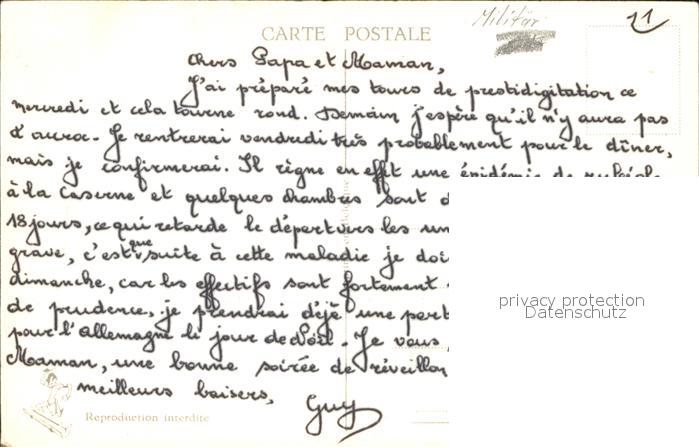 Militär
21
CARTE POSTALE
Chers Papa et Maman,
J'ai préparé mes tours de prestidigitation ce
mercredi et cela tourne rond. Demain j'espère qu'il n'y aura pas
d'accroc. Je rentrerai vendredi très probablement pour le dîner,
mais je confirmerai. Il règne en effet une épidémie de rubéole
à la caserne et quelques chambres sont
18 jours, ce qui retarde le départ vers les
grave, c'est que suite à cette maladie je
dimanche, car les effectifs sont fortement
de prudence. je prendrai déjà une
pour l'allemagne le jour de Noël. Je vous
Maman, une bonne soirée de réveillon
meilleurs baisers,
Guy
Reproduction interdite
privacy protection
Datenschutz